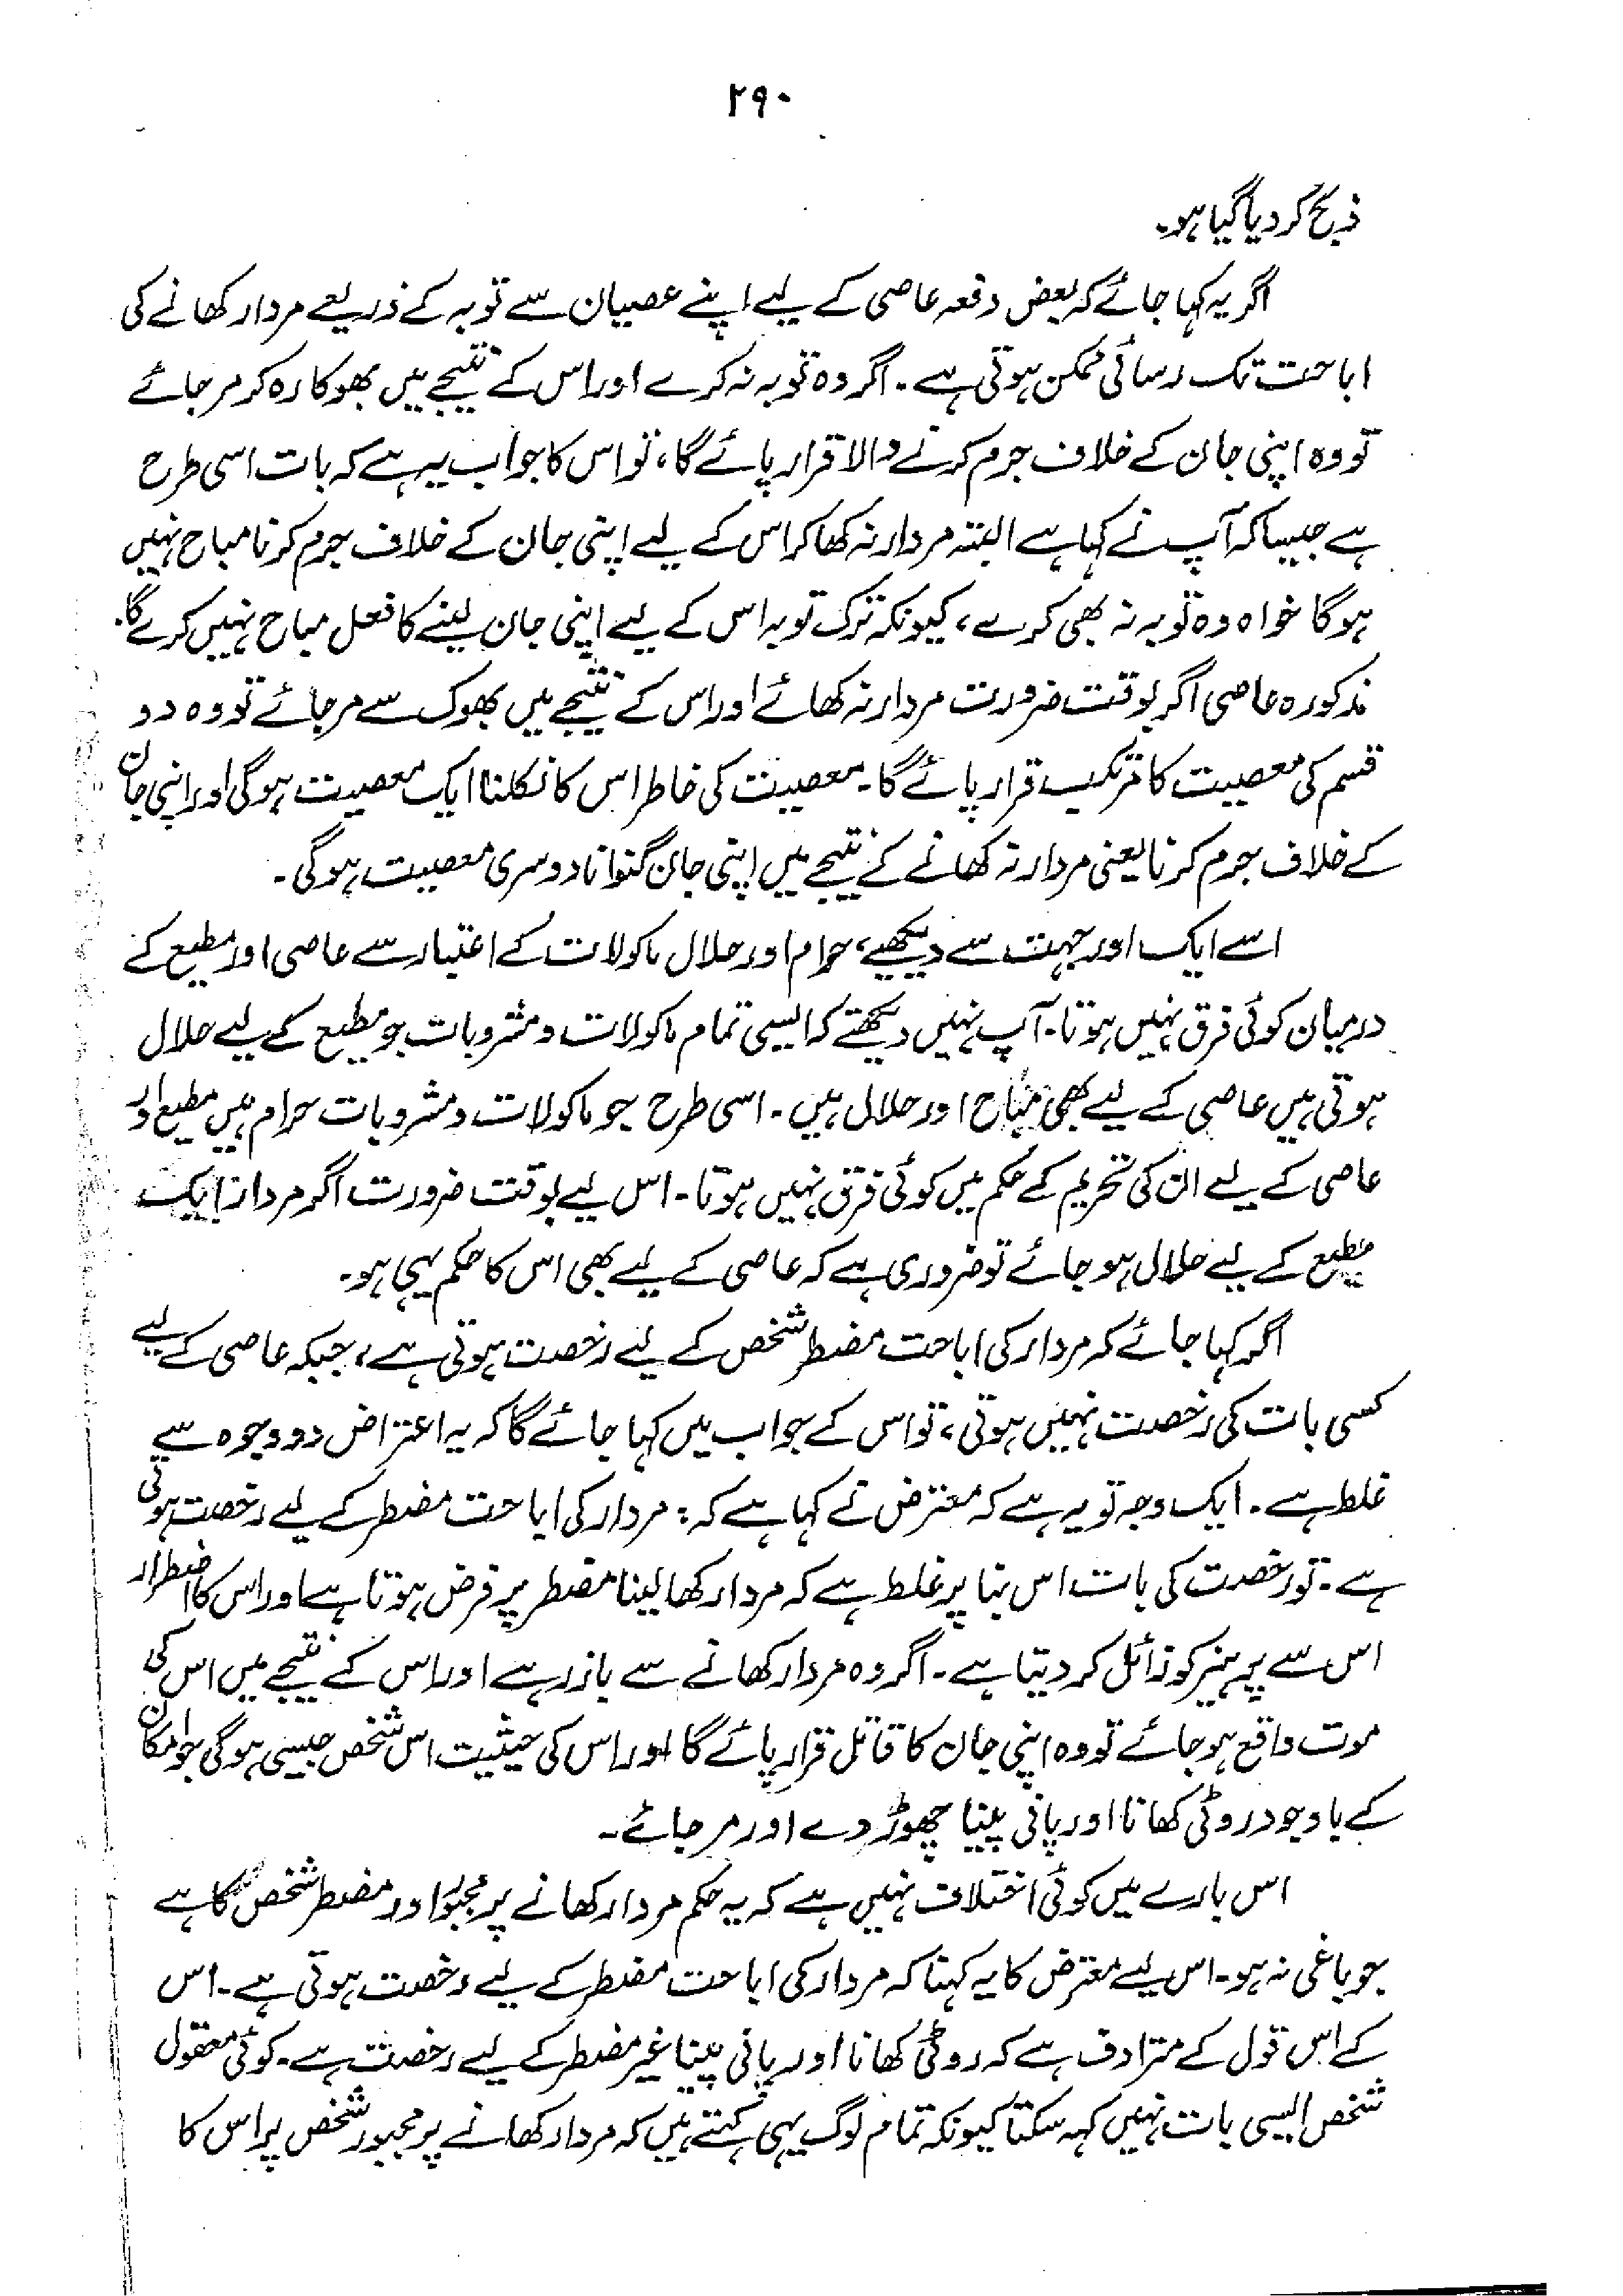 ۲۹۰
ذبح کر دیا گیا ہو۔
اگر یہ کہا جائے کہ بعض دفعہ عاصی کے لیے اپنے عصیان سے توبہ کے ذریعے مردار کھانے کی
اباحت تک رسائی ممکن ہوتی ہے۔ اگر وہ توبہ نہ کرے اور اس کے نتیجے میں بھوکا رہ کر مر جائے
تو وہ اپنی جان کے خلاف جرم کرنے والا قرار پائے گا، تو اس کا جواب یہ ہے کہ بات اسی طرح
ہے جیسا کہ آپ نے کہا ہے البتہ مردار نہ کھا کر اس کے لیے اپنی جان کے خلاف جرم کرنا مباح نہیں
ہو گا خواہ وہ توبہ نہ بھی کرے، کیونکہ ترک توبہ اس کے لیے اپنی جان لینے کا فعل مباح نہیں کرے گا۔
مذکورہ عاصی اگر بوقت ضرورت مردار نہ کھائے اور اس کے نتیجے میں بھوک سے مر جائے تو وہ دو
قسم کی معصیت کا مرتکب قرار پائے گا۔ معصیت کی خاطر اس کا نکلنا ایک معصیت ہو گی اور اپنی جان
کے خلاف جرم کرنا یعنی مردار نہ کھانے کے نتیجے میں اپنی جان گنوانا دوسری معصیت ہو گی۔
اسے ایک اور جہت سے دیکھیے، حرام اور حلال ماکولات کے اعتبار سے عاصی اور مطیع کے
درمیان کوئی فرق نہیں ہوتا۔ آپ نہیں دیکھتے کہ ایسی تمام ماکولات و مشروبات جو مطیع کے لیے حلال
ہوتی ہیں عاصی کے لیے بھی مباح اور حلال ہیں۔ اسی طرح جو ماکولات و مشروبات حرام ہیں مطیع اور
عاصی کے لیے ان کی تحریم کے حکم میں کوئی فرق نہیں ہوتا۔ اس لیے بوقت ضرورت اگر مردار ایک
مطیع کے لیے حلال ہو جائے تو ضروری ہے کہ عاصی کے لیے بھی اس کا حکم یہی ہو۔
اگر کہا جائے کہ مردار کی اباحت مضطر شخص کے لیے رخصت ہوتی ہے، جبکہ عاصی کے لیے
کسی بات کی رخصت نہیں ہوتی، تو اس کے جواب میں کہا جائے گا کہ یہ اعتراض دو وجوہ سے
غلط ہے۔ ایک وجہ تو یہ ہے کہ معترض نے کہا ہے کہ: مردار کی اباحت مضطر کے لیے رخصت ہوتی
ہے۔ تو رخصت کی بات اس بنا پر غلط ہے کہ مردار کھا لینا مضطر پر فرض ہوتا ہے اور اس کا اضطرار
اس سے پرہیز کو زائل کر دیتا ہے۔ اگر وہ مردار کھانے سے باز رہے اور اس کے نتیجے میں اس کی
موت واقع ہو جائے تو وہ اپنی جان کا قاتل قرار پائے گا اور اس کی حیثیت اس شخص جیسی ہو گی جو امکان
کے باوجود روٹی کھانا اور پانی پینا چھوڑ دے اور مر جائے۔
اس بارے میں کوئی اختلاف نہیں ہے کہ یہ حکم مردار کھانے پر مجبور اور مضطر شخص کا ہے
جو باغی نہ ہو۔ اس لیے معترض کا یہ کہنا کہ مردار کی اباحت مضطر کے لیے رخصت ہوتی ہے۔ اس
کے اس قول کے مترادف ہے کہ روٹی کھانا اور پانی پینا غیر مضطر کے لیے رخصت ہے۔ کوئی معقول
شخص ایسی بات نہیں کہہ سکتا کیونکہ تمام لوگ یہی کہتے ہیں کہ مردار کھانے پر مجبور شخص پر اس کا